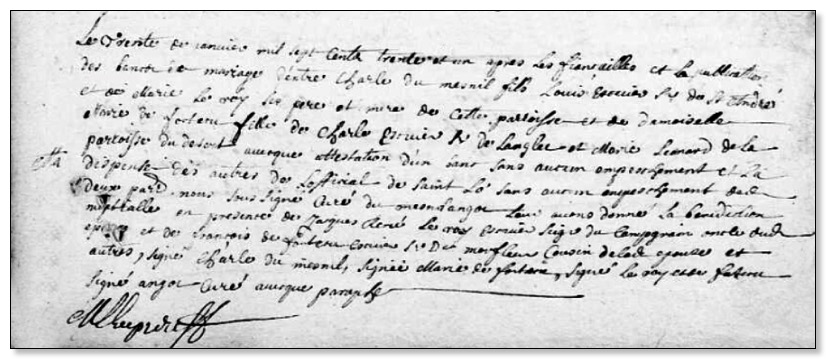 Le Trente de janvier mil sept cents trente et un apres Les fiencailles et la publication
des bancs de mariage d'entre Charle du mesnil fils Louis Escuier Sr de St André
et de Marie Le roy ses pere et mere de cette parroisse et de damoiselle
Marie de fortenu fille de Charle Escuier Sr de Langlee et Marie Simard de la
parroisse du desert avecque attestation d'un banc sans aucun empeschement et La
dispense des autres de L'official de Saint Lô sans aucun empeschement des
deux pard nous sous signé Curé du mesnilangot Leur avons donné La benediction
nuptialle en presence de Jacques René Le roy Escuier Seigr du Campgrain oncle dud
epoux et de françois de fortenu Escuier Sr De monfleur Cousin de lad epouse et
autres, signé Charle du mesnil, signée Marie de fortenu, signé Le roy et de fortenu
signé angot Curé avecque paraphe